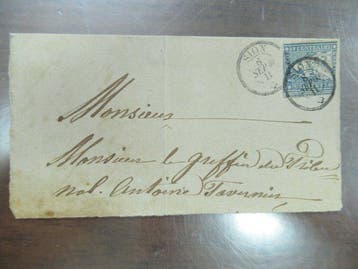 SION
8
SEPT
Monsieur
Monsieur le greffier du Tribu
nal. Antoine Tavernier